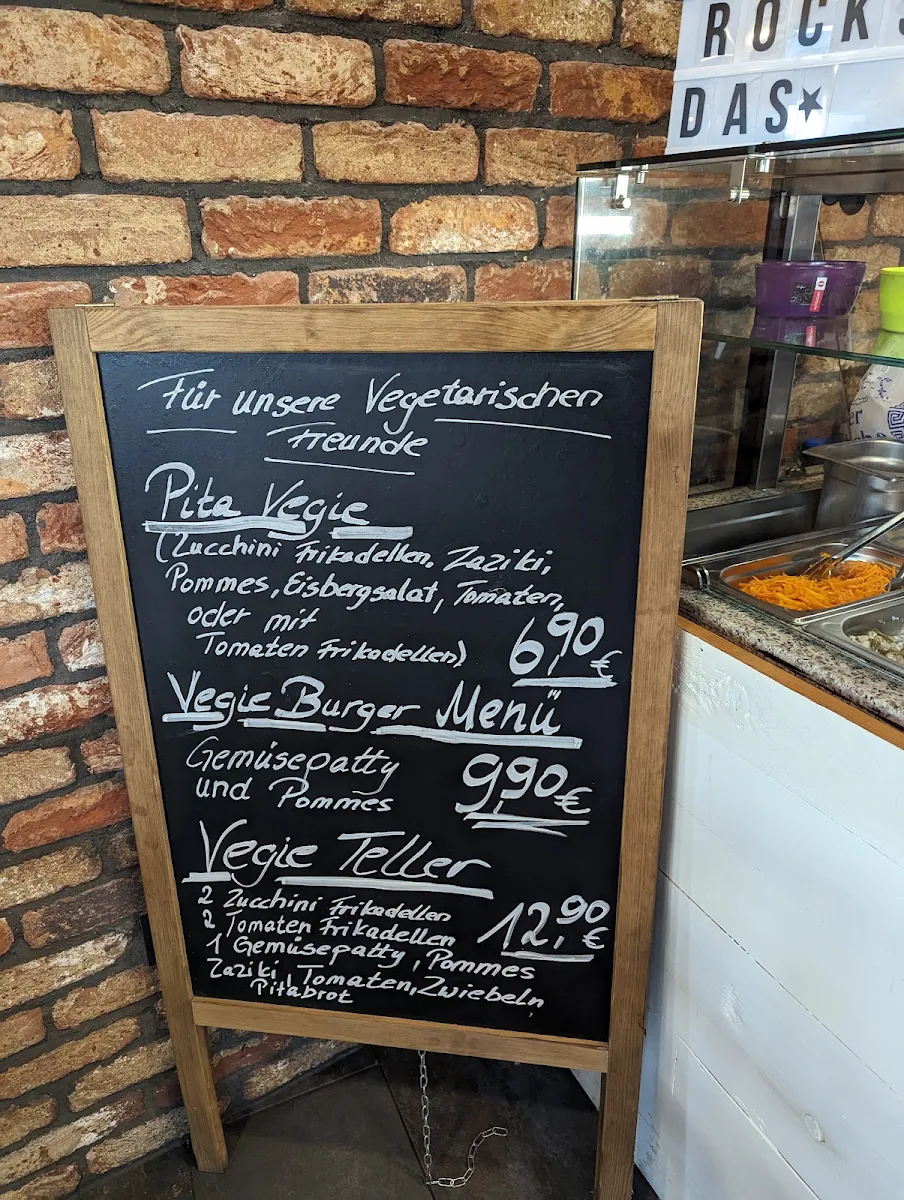 ROCKS
DAS★
Für unsere Vegetarischen
Freunde
Pita Vegie
(Zucchini Frikadellen, Zaziki,
Pommes, Eisbergsalat, Tomaten,
oder mit
Tomaten Frikadellen)
6,90 €
Vegie Burger Menü
Gemüsepatty
und Pommes
9,90 €
Vegie Teller
2 Zucchini Frikadellen
2 Tomaten Frikadellen
12,90 €
1 Gemüsepatty, Pommes
Zaziki, Tomaten, Zwiebeln,
Pitabrot